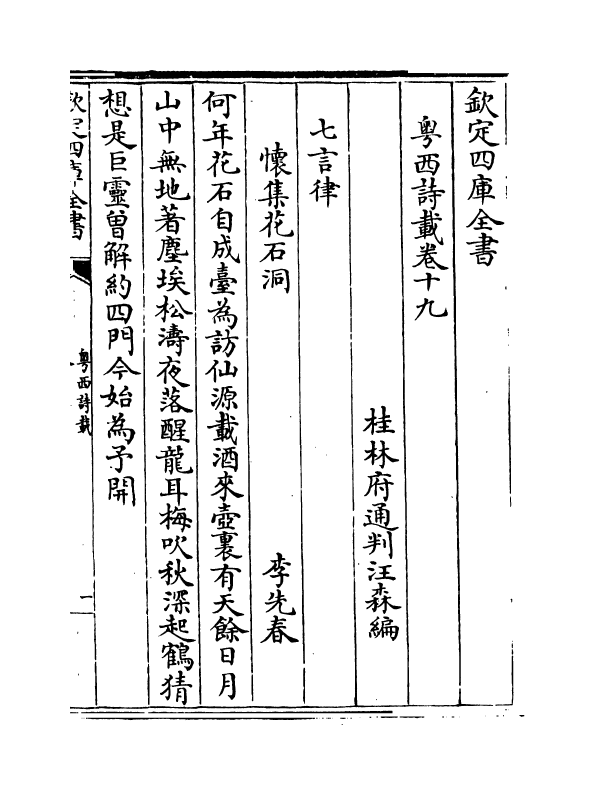 欽定四庫全書
粤西詩載卷十九
桂林府通判汪森編
七言律
懷集花石洞　李先春
何年花石自成臺為訪仙源載酒來壺裏有天餘日月
山中無地著塵埃松濤夜落醒龍耳梅吹秋深起鶴猜
想是巨靈曾解約四門今始為予開
欽定四庫全書
粤西詩載
二